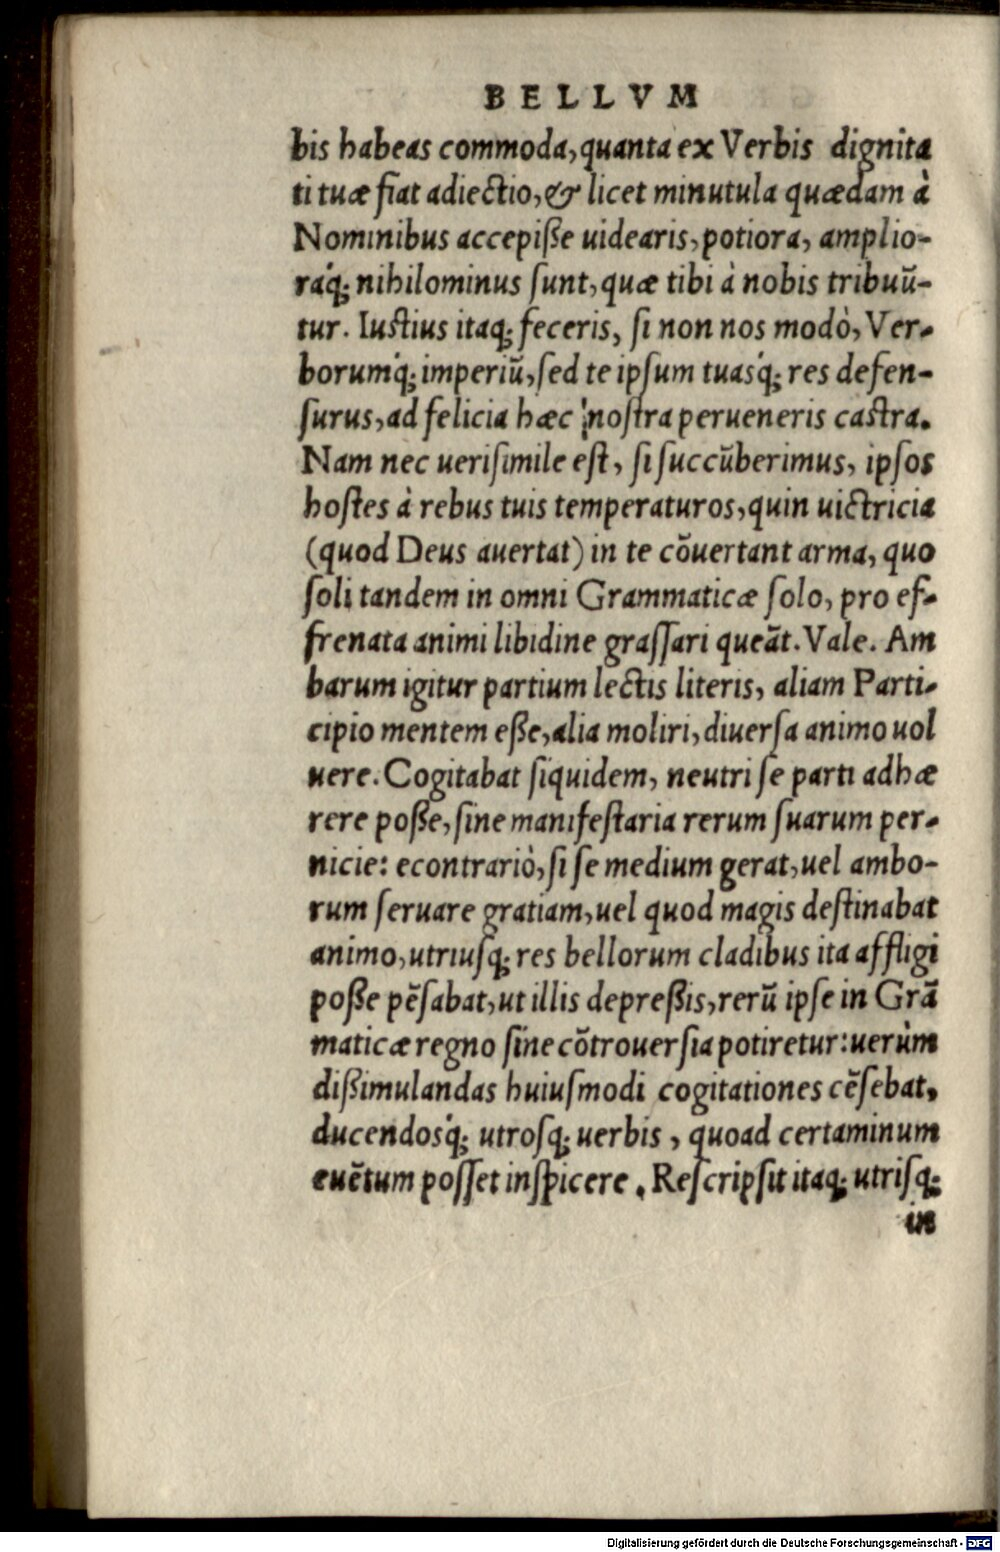 BELLVM
bis habeas commoda, quanta ex Verbis dignita
ti tuæ fiat adiectio, & licet minutula quædam à
Nominibus accepiſſe uidearis, potiora, amplio-
raq́; nihilominus ſunt, quæ tibi à nobis tribuū-
tur. Iuſtius itaq; feceris, ſi non nos modò, Ver-
borumq́; imperiū, ſed te ipſum tuasq́; res defen-
ſurus, ad felicia hæc noſtra perueneris caſtra.
Nam nec ueriſimile eſt, ſi ſuccūberimus, ipſos
hoſtes à rebus tuis temperaturos, quin uictricia
(quod Deus auertat) in te cōuertant arma, quo
ſoli tandem in omni Grammaticæ ſolo, pro ef-
frenata animi libidine graſſari queāt. Vale. Am
barum igitur partium lectis literis, aliam Parti-
cipio mentem eße, alia moliri, diuerſa animo uol
uere. Cogitabat ſiquidem, neutri ſe parti adhæ
rere poße, ſine manifeſtaria rerum ſuarum per-
nicie: econtrariò, ſi ſe medium gerat, uel ambo-
rum ſeruare gratiam, uel quod magis deſtinabat
animo, utriuſq; res bellorum cladibus ita affligi
poße pēſabat, ut illis depreßis, rerū ipſe in Grā
maticæ regno ſine cōtrouerſia potiretur: uerùm
dißimulandas huiuſmodi cogitationes cēſebat,
ducendosq́; utroſq; uerbis, quoad certaminum
euētum poſſet inſpicere. Reſcripſit itaq; utriſq;
in
Digitalisierung gefördert durch die Deutsche Forschungsgemeinschaft - DFG